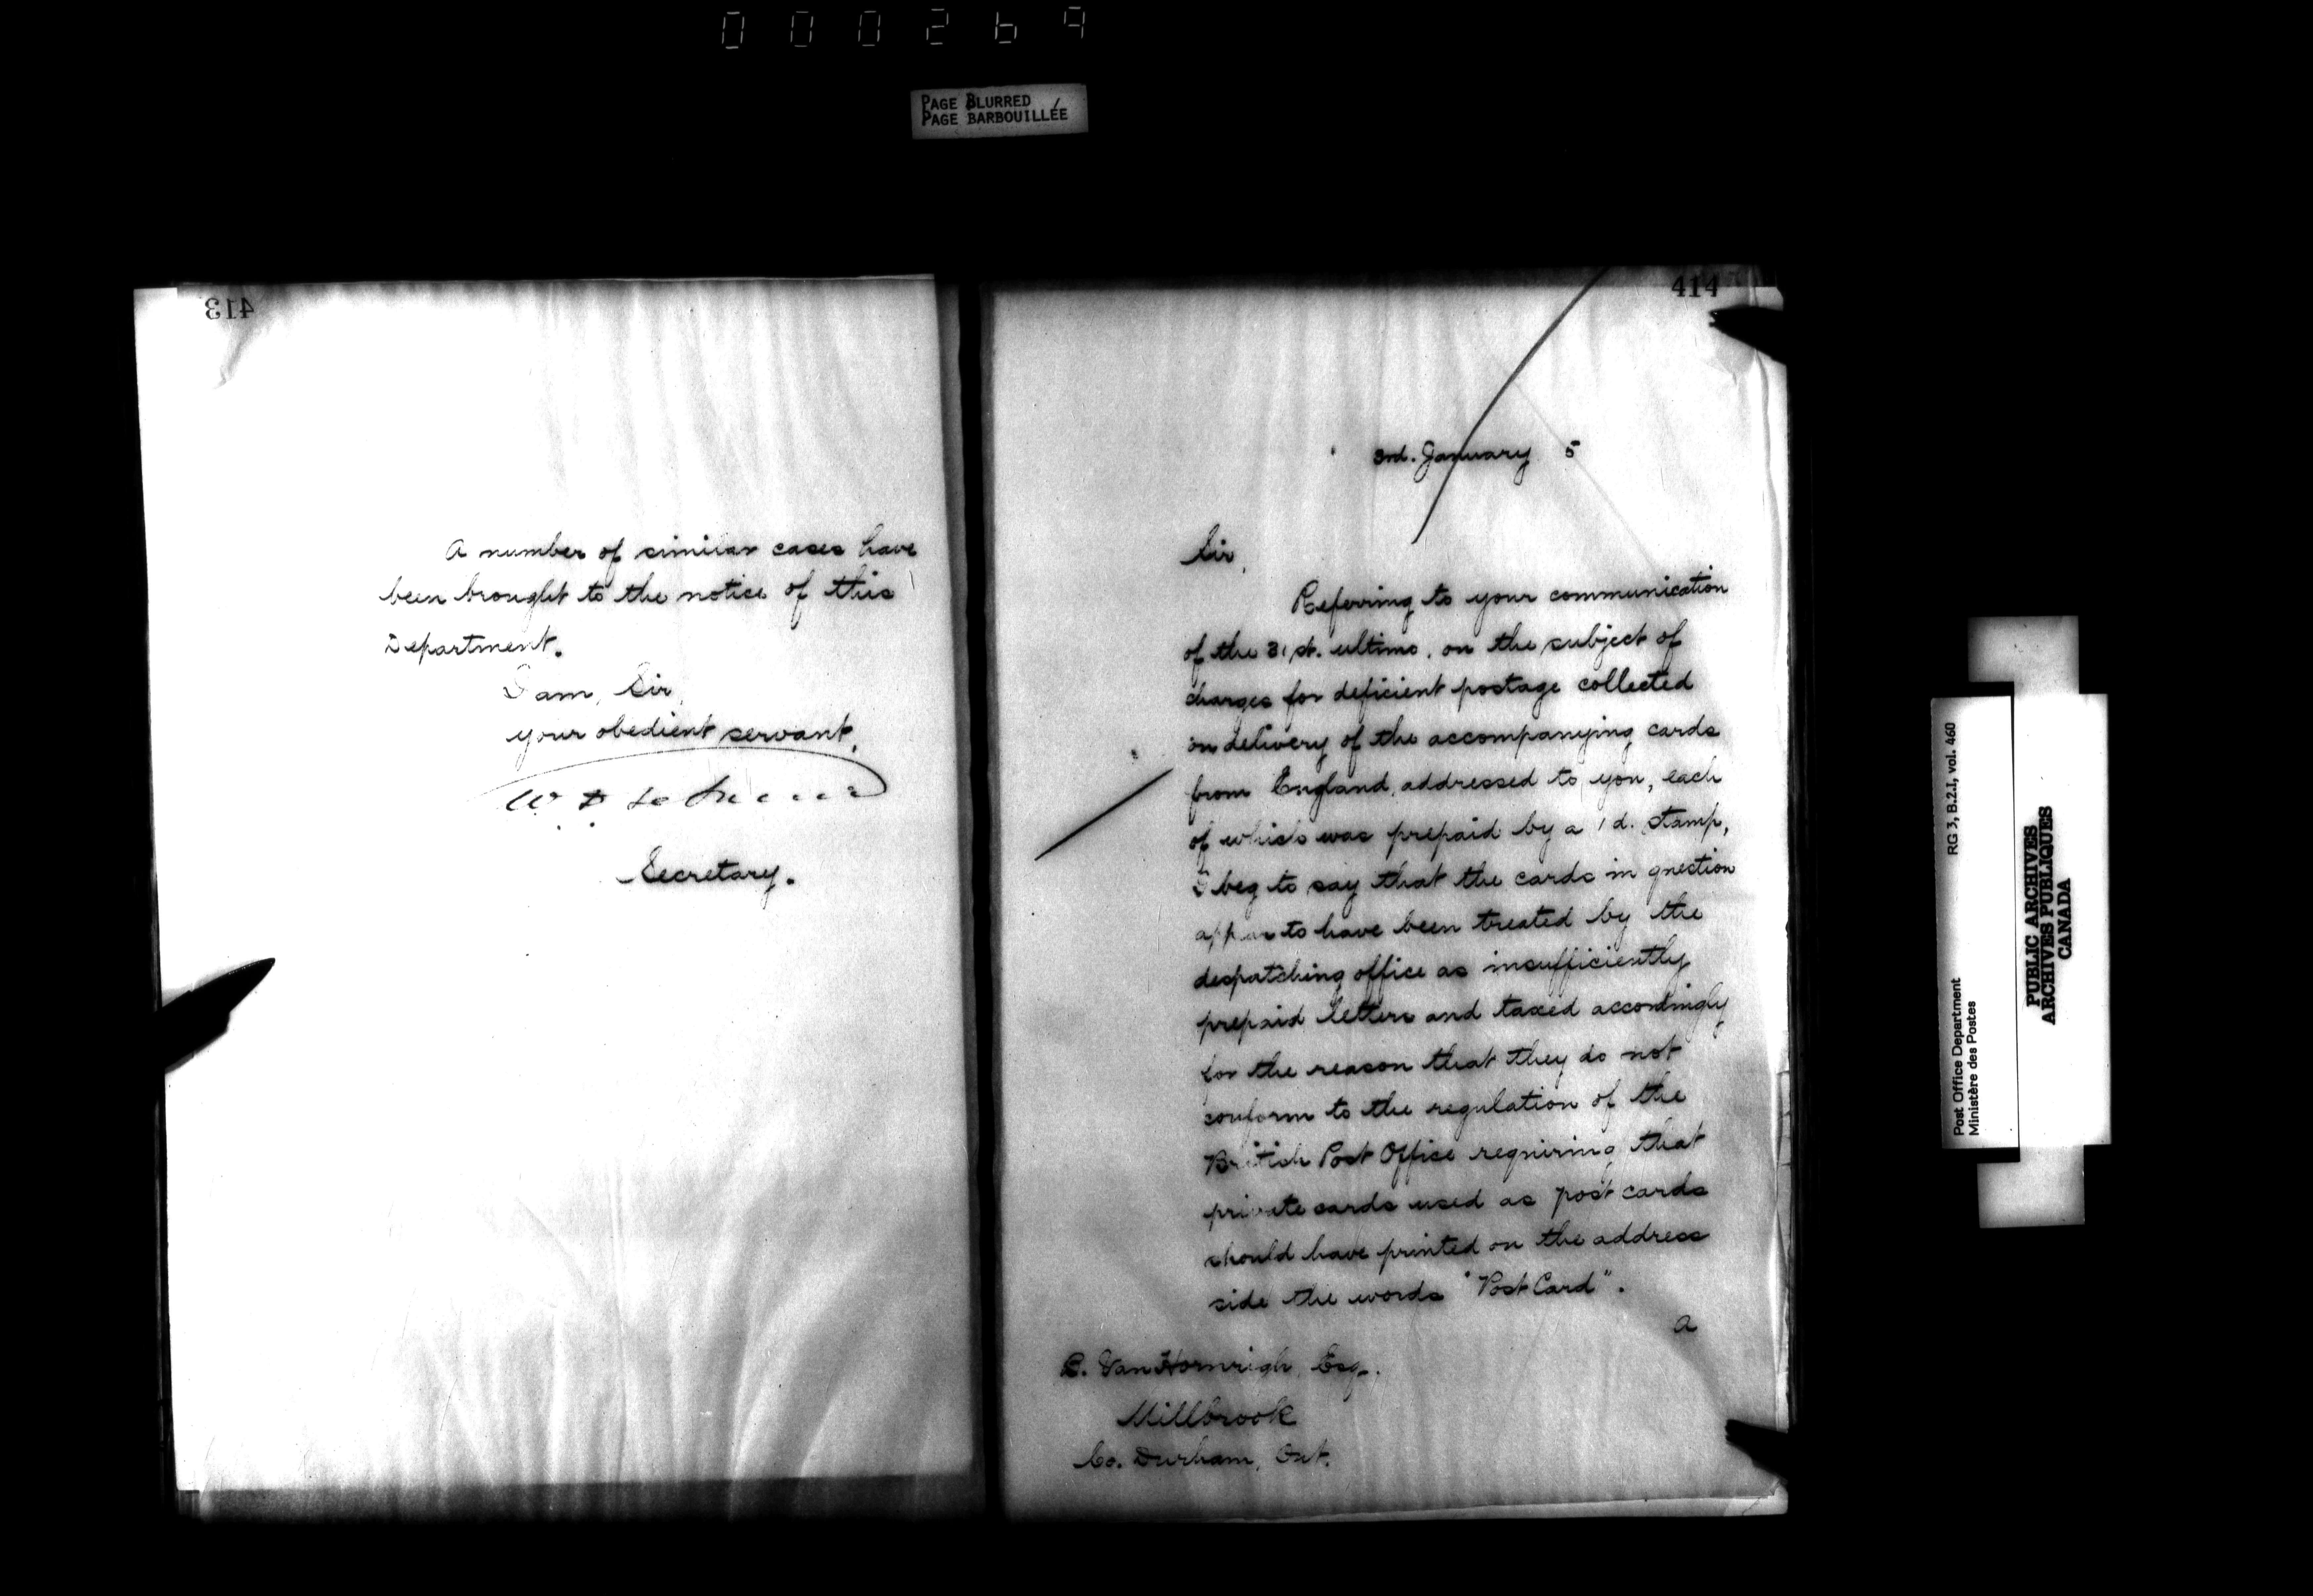 000269
PAGE BLURRED
PAGE BARBOUILLÉE
413
A number of similar cases have
been brought to the notice of this
Department.
I am, Sir,
your obedient servant,
W. D.
Secretary.
414
3rd. January 5
Sir,
Referring to your communication
of the 31st. ultimo, on the subject of
charges for deficient postage collected
on delivery of the accompanying cards
from England, addressed to you, each
of which was prepaid by a 1d. stamp,
I beg to say that the cards in question
appear to have been treated by the
despatching office as insufficiently
prepaid letters and taxed accordingly
for the reason that they do not
conform to the regulation of the
British Post Office requiring that
private cards used as post cards
should have printed on the address
side the words "Post Card".
A
Esq.,
Millbrook
Co. Durham, Ont.
Post Office Department RG 3, B.2.I, vol. 460
Ministère des Postes
PUBLIC ARCHIVES
ARCHIVES PUBLIQUES
CANADA